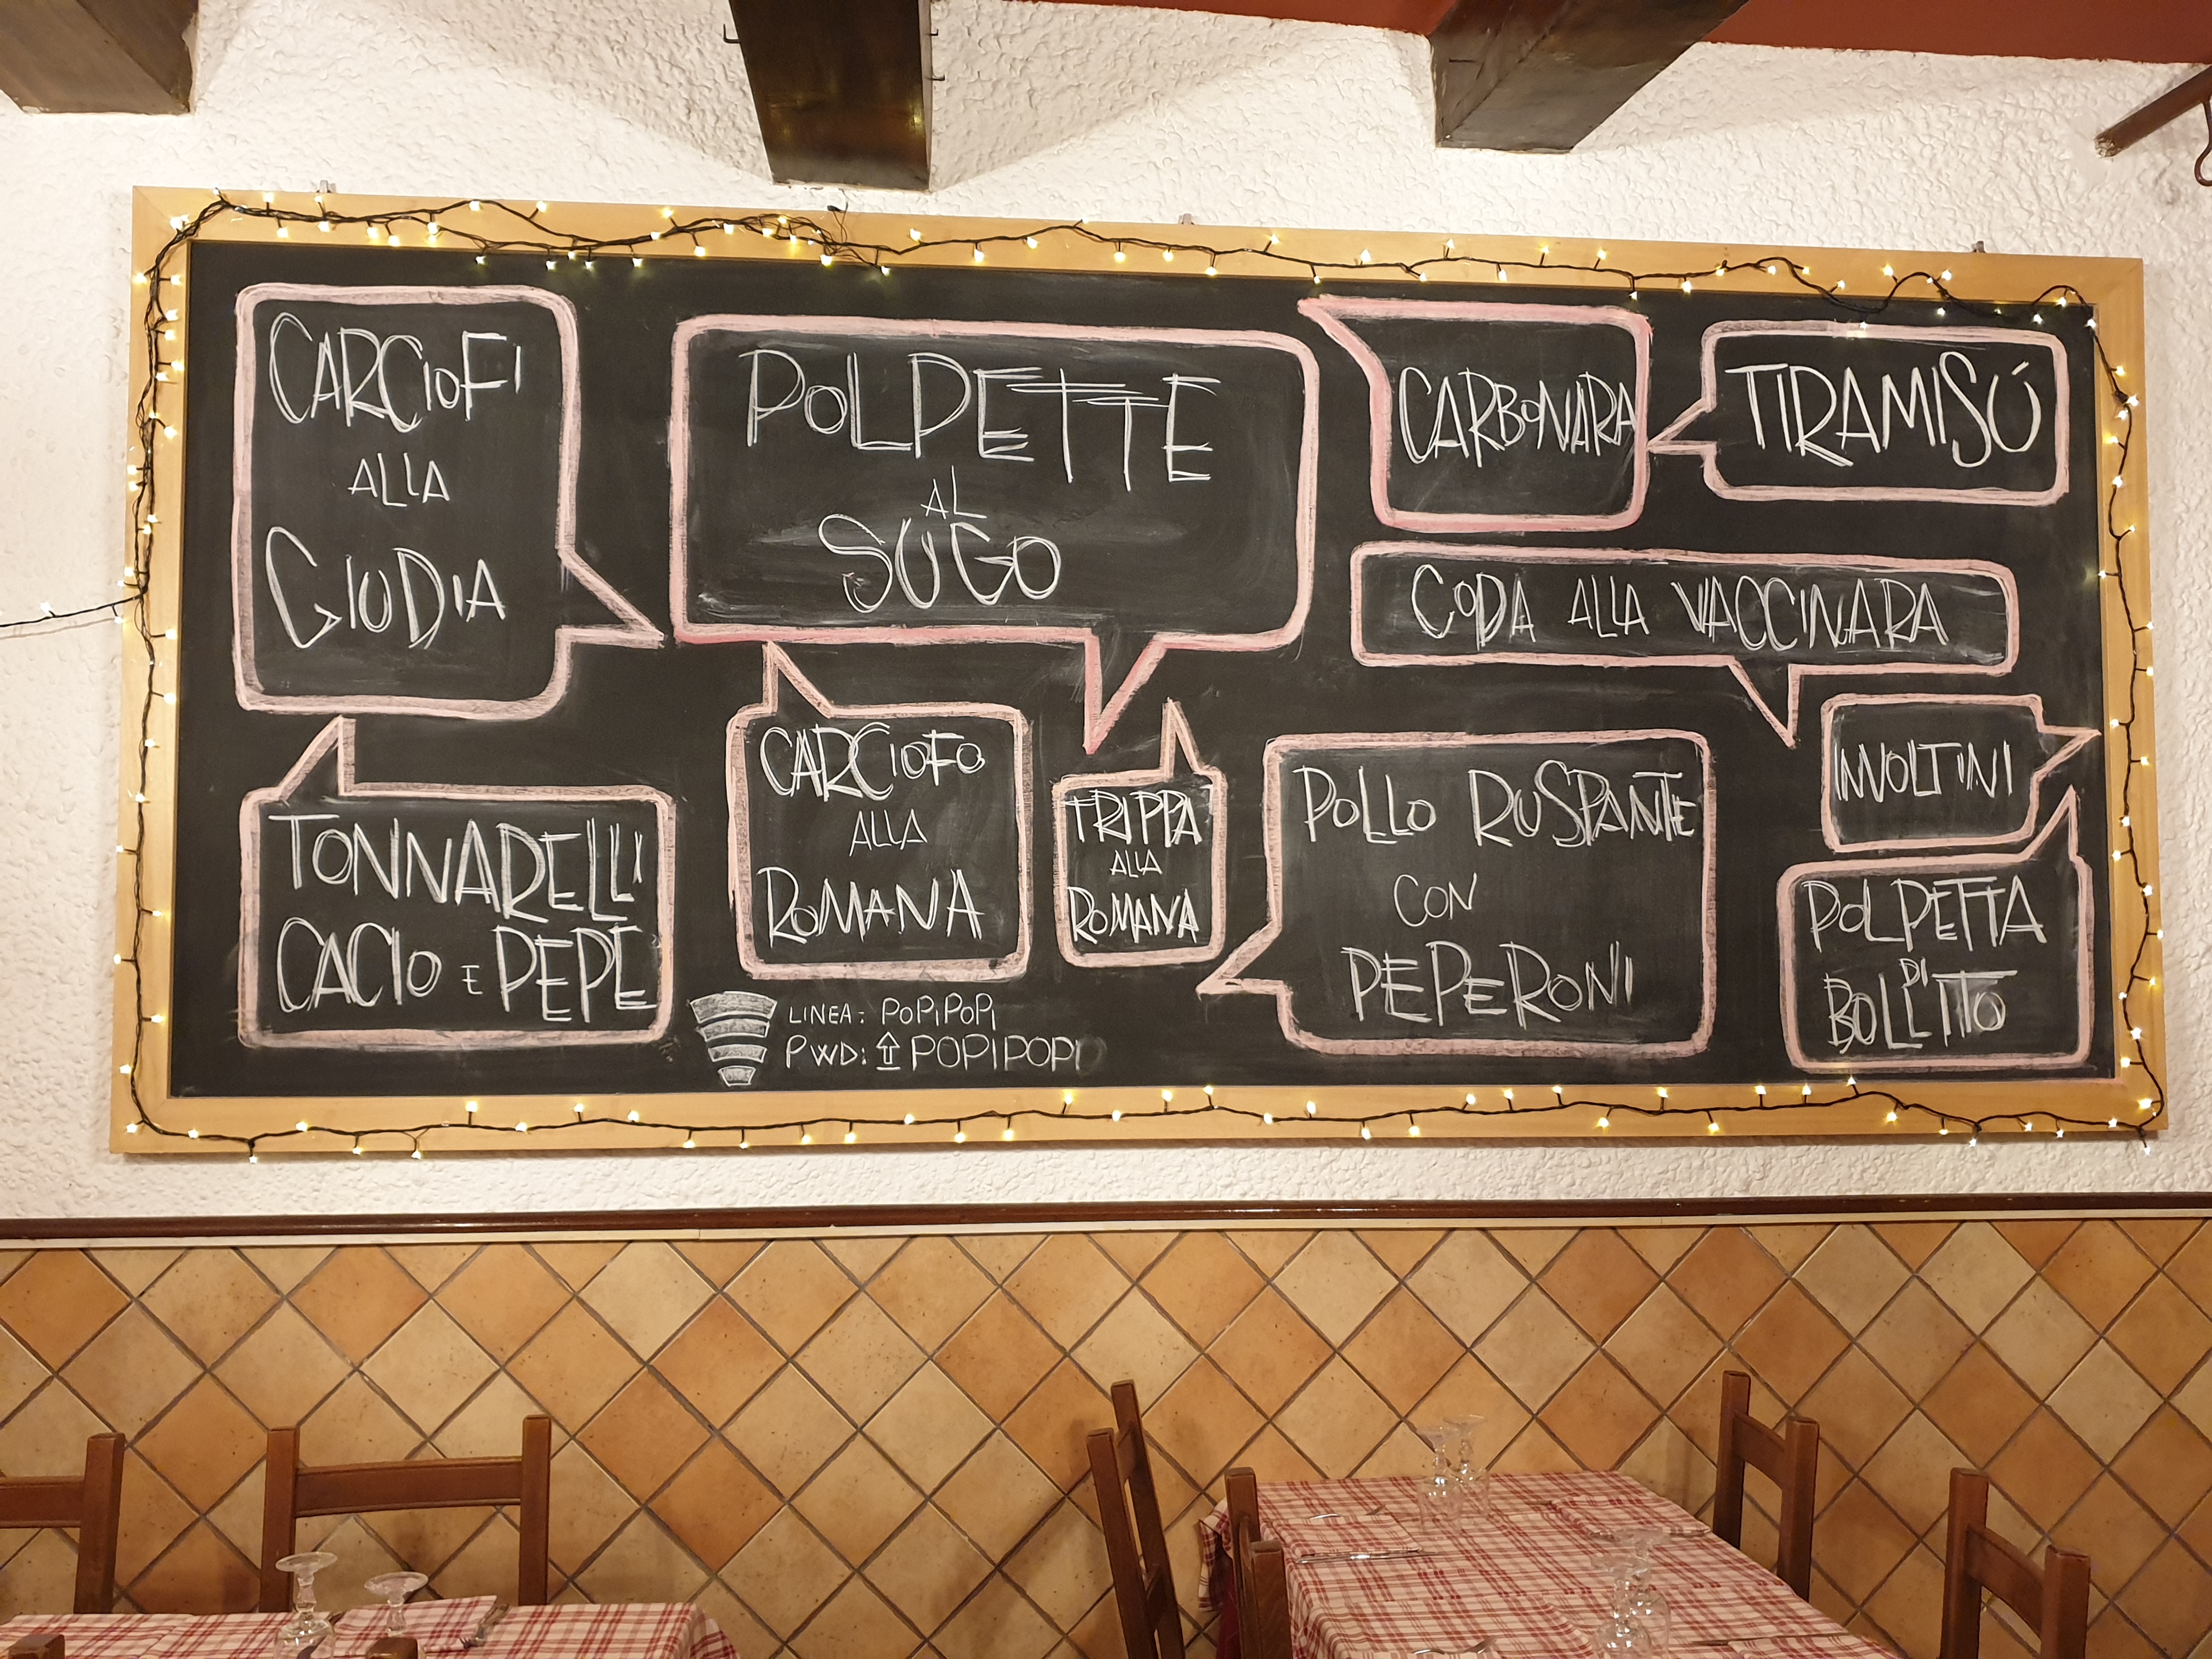 CARCIOFI
ALLA
GIUDIA
POLPETTE
AL
SUGO
CARBONARA
TIRAMISÚ
CODA ALLA VACCINARA
TONNARELLI
CACIO E PEPE
CARCIOFO
ALLA
ROMANA
TRIPPA
ALLA
ROMANA
POLLO RUSPANTE
CON
PEPERONI
INVOLTINI
POLPETTA
DI
BOLLITO
LINEA: POPIPOPI
PWD: ⇧ POPIPOPI